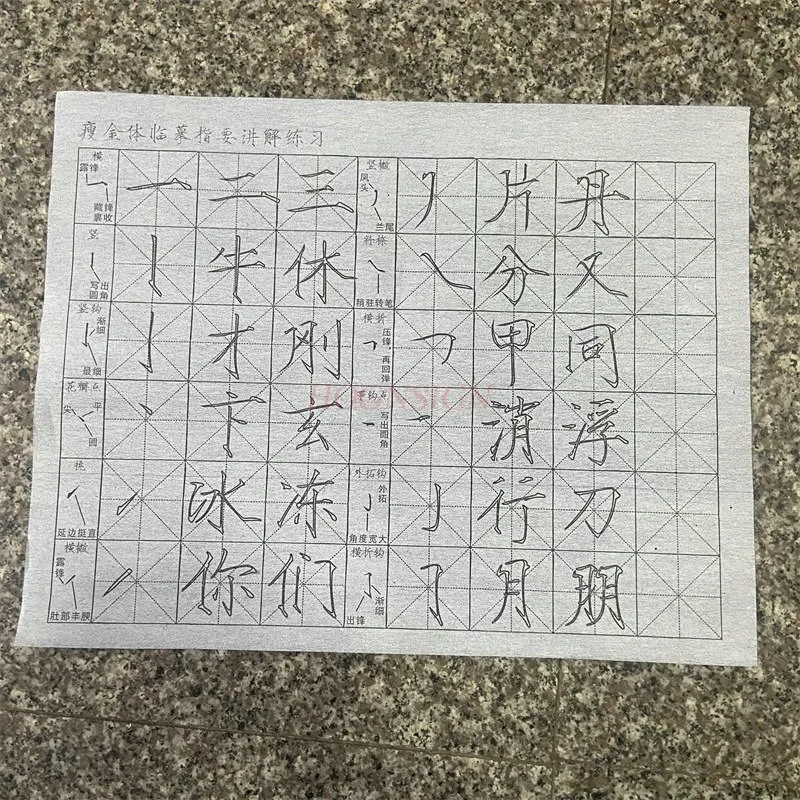 瘦金体临摹指要讲解练习
横 露锋 藏锋裹收 一 二 三 竖撇 凤头 兰尾 片 丹
竖 写出圆角 丨 牛 休 斜捺 稍驻转笔 ㇏ 分 又
竖钩 渐细 最细 亅 才 刚 横折 压锋,再回弹 ㇕ 甲 同
花瓣点 尖 平 圆 丶 卞 玄 写出圆角 消 浮
挑 延边挺直 ㇀ 冰 冻 外拓钩 外拓 角度宽大 亅 行 刀
横撇 露锋 肚部丰腴 丿 你 们 横折钩 渐细 出锋 ㇆ 月 朋